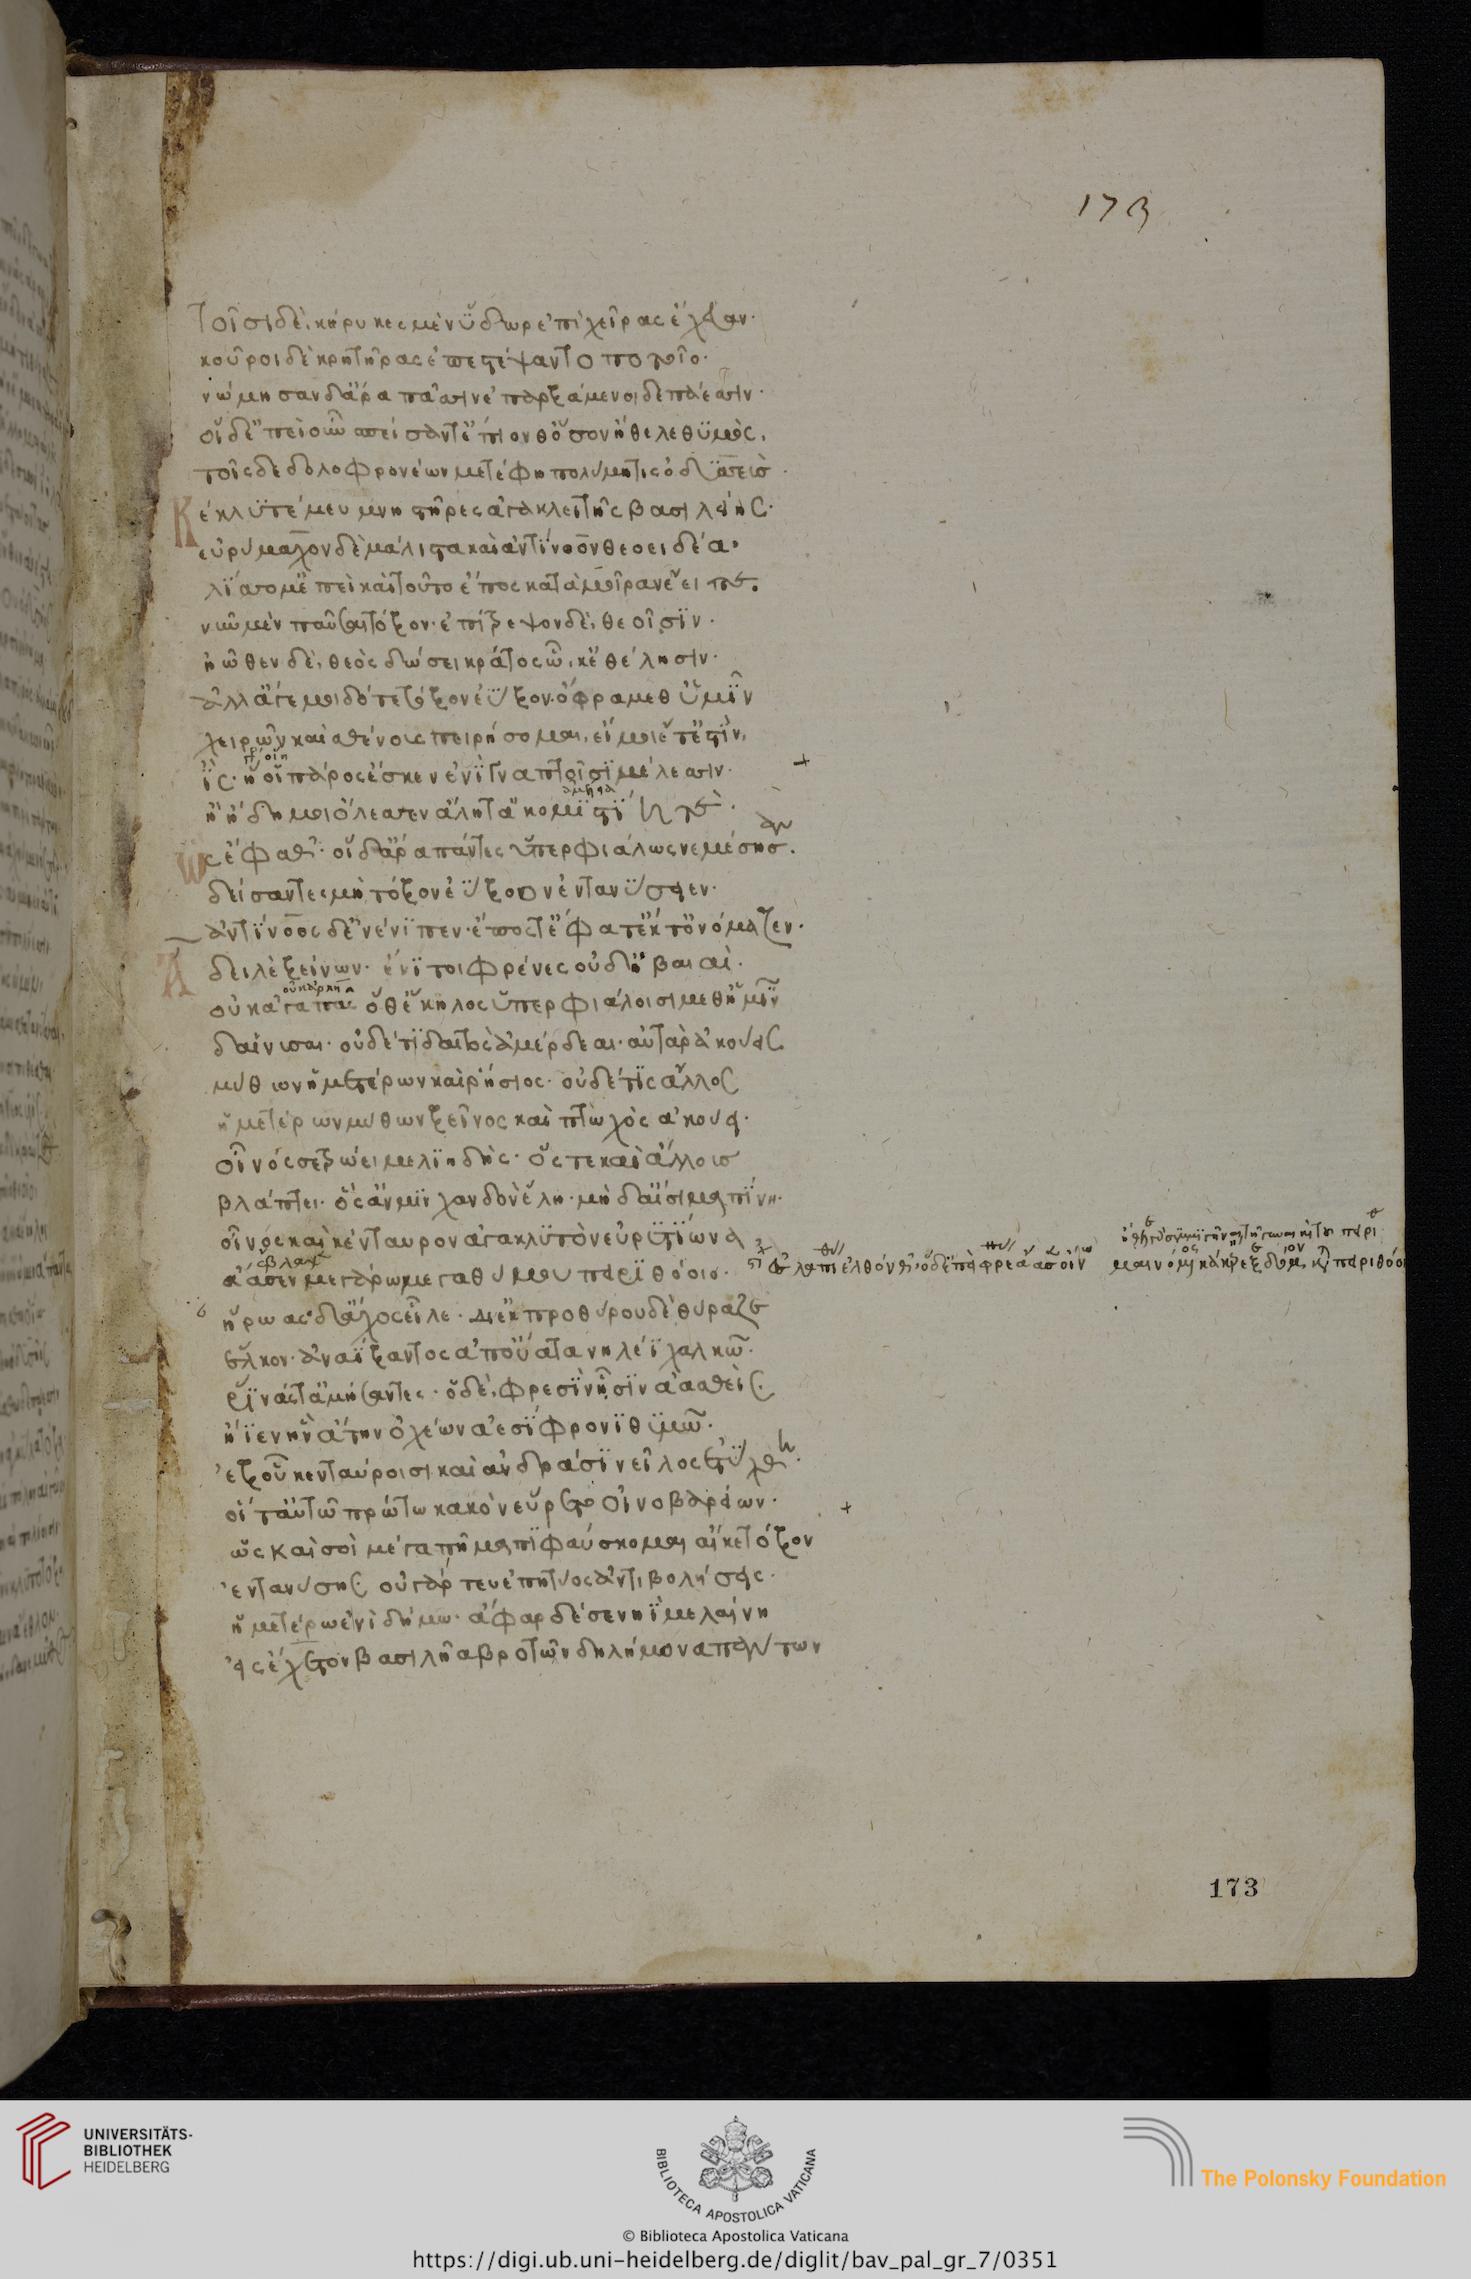 173
Τοῖσι δὲ κήρυκες μὲν ὕδωρ ἐπὶ χεῖρας ἔχευαν·
κοῦροι δὲ κρητῆρας ἐπεστέψαντο ποτοῖο·
νώμησαν δ' ἄρα πᾶσιν ἐπαρξάμενοι δεπάεσσιν·
οἱ δ' ἐπεὶ οὖν σπεῖσάν τ' ἔπιον θ' ὅσον ἤθελε θυμὸς,
τοῖς δὲ δολοφρονέων μετέφη πολύμητις ὀδυσσεύς·
Κέκλυτέ μευ μνηστῆρες ἀγακλειτῆς βασιλείης·
εὐρύμαχον δὲ μάλιστα καὶ ἀντίνοον θεοειδέα·
λίσσομ' ἐπεὶ καὶ τοῦτο ἔπος κατὰ μοῖραν ἔειπε·
νῦν μὲν παῦσαι τόξον· ἐπιτρέψον δὲ, θεοῖσιν·
ἠῶθεν δὲ, θεὸς δώσει κράτος ᾧ, κ' ἐθέλησιν·
ἀλλ' ἄγε μοι δότε τόξον ἐΰξοον· ὄφρα μεθ' ὑμῖν
χειρῶν καὶ σθένους πειρήσομαι, εἴ μοι ἔτ' ἐστὶν,
ἲς· οἵη πάρος ἔσκεν ἐνὶ γναπτοῖσι μέλεσσιν·
ἢ ἤδη μοι ὄλεσσεν ἄλη τ' ἀκομιστίη τε·
ὣς ἔφαθ'· οἱ δ' ἄρα πάντες ὑπερφιάλως νεμέσησαν·
δείσαντες μὴ τόξον ἐΰξοον ἐντανύσειεν·
ἀντίνοος δ' ἐνένιπεν· ἔπος τ' ἔφατ' ἔκ τ' ὀνόμαζεν·
Ἆ δειλὲ ξείνων· ἔνι τοι φρένες οὐδ' ἠβαιαί·
οὐκ ἀγαπᾷς ὃ θ' ἕκηλος ὑπερφιάλοισι μεθ' ἡμῖν
δαίνυσαι· οὐδέ τι δαιτὸς ἀμέρδεαι· αὐτὰρ ἀκούεις
μύθων ἡμετέρων καὶ ῥήσιος· οὐδέ τις ἄλλος
ἡμετέρων μύθων ξεῖνος καὶ πτωχὸς ἀκούει·
οἶνός σε τρώει μελιηδὴς· ὅς τε καὶ ἄλλους
βλάπτει· ὃς ἄν μιν χανδὸν ἕλῃ· μὴ δ' αἴσιμα πίνῃ·
οἶνος καὶ κένταυρον ἀγακλυτὸν εὐρυτίωνα
ἔβλαψε
ἄασεν μεγάρῳ μεγαθύμου πειριθόοιο·
ἥρωας δ' ἄχος εἷλε· διὲκ προθύρου δὲ θύραζε
ἕλκον· ἀναΐξαντος ἀπ' οὔατα νηλέϊ χαλκῷ·
ῥῖνάς τ' ἀμήσαντες· ὁ δὲ, φρεσὶν ᾗσιν ἀασθεὶς·
ἤϊεν ἣν ἄτην ὀχέων ἀεσίφρονι θυμῷ·
ἐξ οὗ κενταύροισι καὶ ἀνδράσι νεῖκος ἐτύχθη·
οἷ τ' αὐτῷ πρώτῳ κακὸν εὕρετο οἰνοβαρείων·
ὣς καὶ σοὶ μέγα πῆμα πιφαύσκομαι αἴ κε τόξον
ἐντανύσῃς· οὐ γάρ τευ ἐπητύος ἀντιβολήσεις·
ἡμετέρῳ ἐνὶ δήμῳ· ἄφαρ δέ σε νηῒ μελαίνῃ
εἰς ἔχετον βασιλῆα βροτῶν δηλήμονα πάντων
173
UNIVERSITÄTS-
BIBLIOTHEK
HEIDELBERG
BIBLIOTECA APOSTOLICA VATICANA
The Polonsky Foundation
© Biblioteca Apostolica Vaticana
https://digi.ub.uni-heidelberg.de/diglit/bav_pal_gr_7/0351